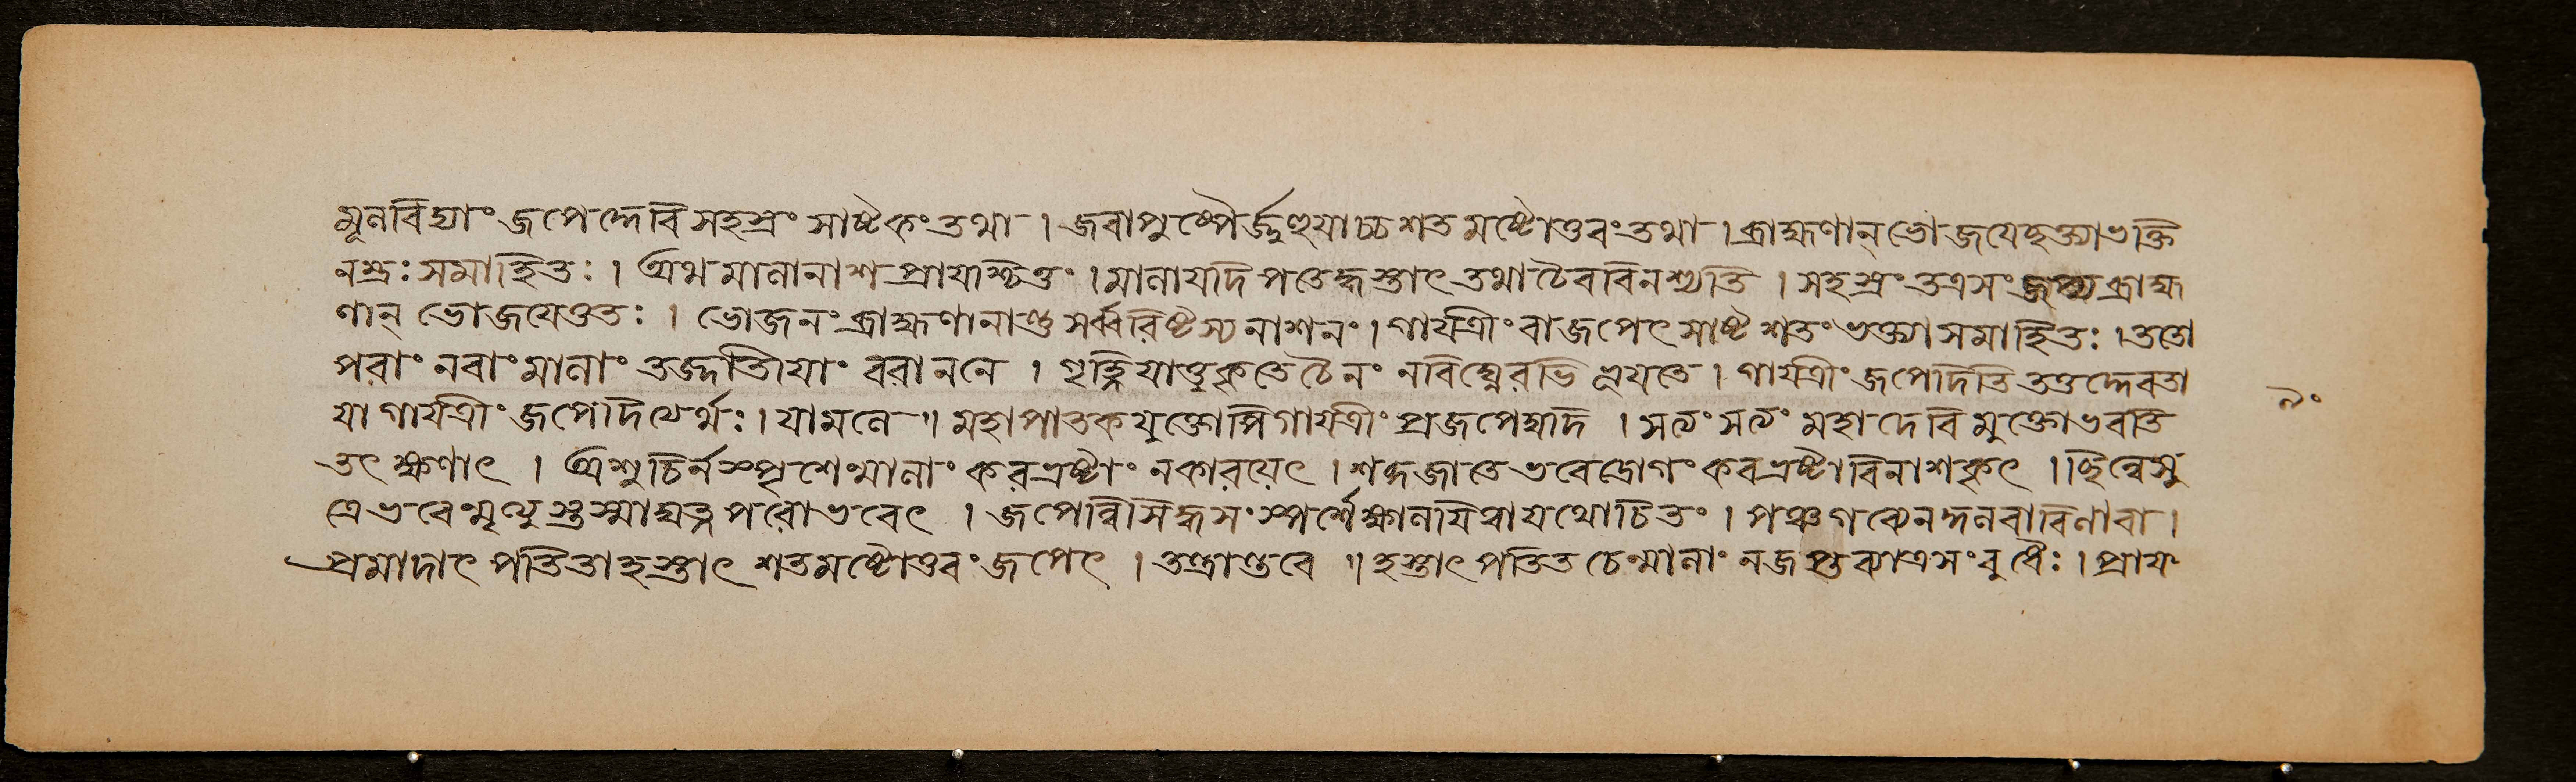 মূলবিদ্যাং জপেদ্দেবি সহস্রং সাষ্টকং তথা । জবাপুষ্পৈর্জ্জুহুয়াচ্চ শতমষ্টোত্তরং তথা । ব্রাহ্মণান্ ভোজয়েদ্ভক্ত্যা ভক্তি
নম্রঃ সমাহিতঃ । অথ মালানাশ প্রায়শ্চিত্তং । মালা যদি পতেদ্ধস্তাৎ তথা চৈব বিনশ্যতি । সহস্রং তত্র সংজপ্য ব্রাহ্ম
ণান্ ভোজয়েত্ততঃ । ভোজনং ব্রাহ্মণানাঞ্চ সর্ব্বরিষ্টস্য নাশনং । গায়ত্রীং বা জপেৎ সাষ্টশতং ভক্ত্যা সমাহিতঃ । ততো
পরাং নবাং মালাং বরাননে । গৃহ্ণীয়াৎ চৈনং ন বিঘ্নৈরভিভূয়তে । গায়ত্রীং জপেদিতি তত্তদ্দেবতা
য়া গায়ত্রীং জপেদিত্যর্থঃ । যামলে ॥ মহাপাতকযুক্তোপি গায়ত্রীং প্রজপেদ্যদি । সত্যং সত্যং মহাদেবি মুক্তো ভবতি
তৎক্ষণাৎ । অশুচির্ন স্পৃশেন্মালাং করভ্রষ্টাং ন কারয়েৎ । শব্দে জাতে ভবেদ্রোগং করভ্রষ্টা বিনাশকৃৎ । ছিন্নে সূ
ত্রে ভবেন্মৃত্যুস্তস্মাদ্যত্নপরো ভবেৎ । জপেন্নিষিদ্ধসংস্পর্শে ক্ষালয়িত্বা যথোচিতং । পঞ্চগব্যেন বারিণা বা ।
প্রমাদাৎ পতিতা হস্তাৎ শতমষ্টোত্তরং জপেৎ । তন্ত্রান্তরে ॥ হস্তাৎ পতিত চেন্মালাং ন জপ্তব্যাত্র সংবুধৈঃ । প্রায়